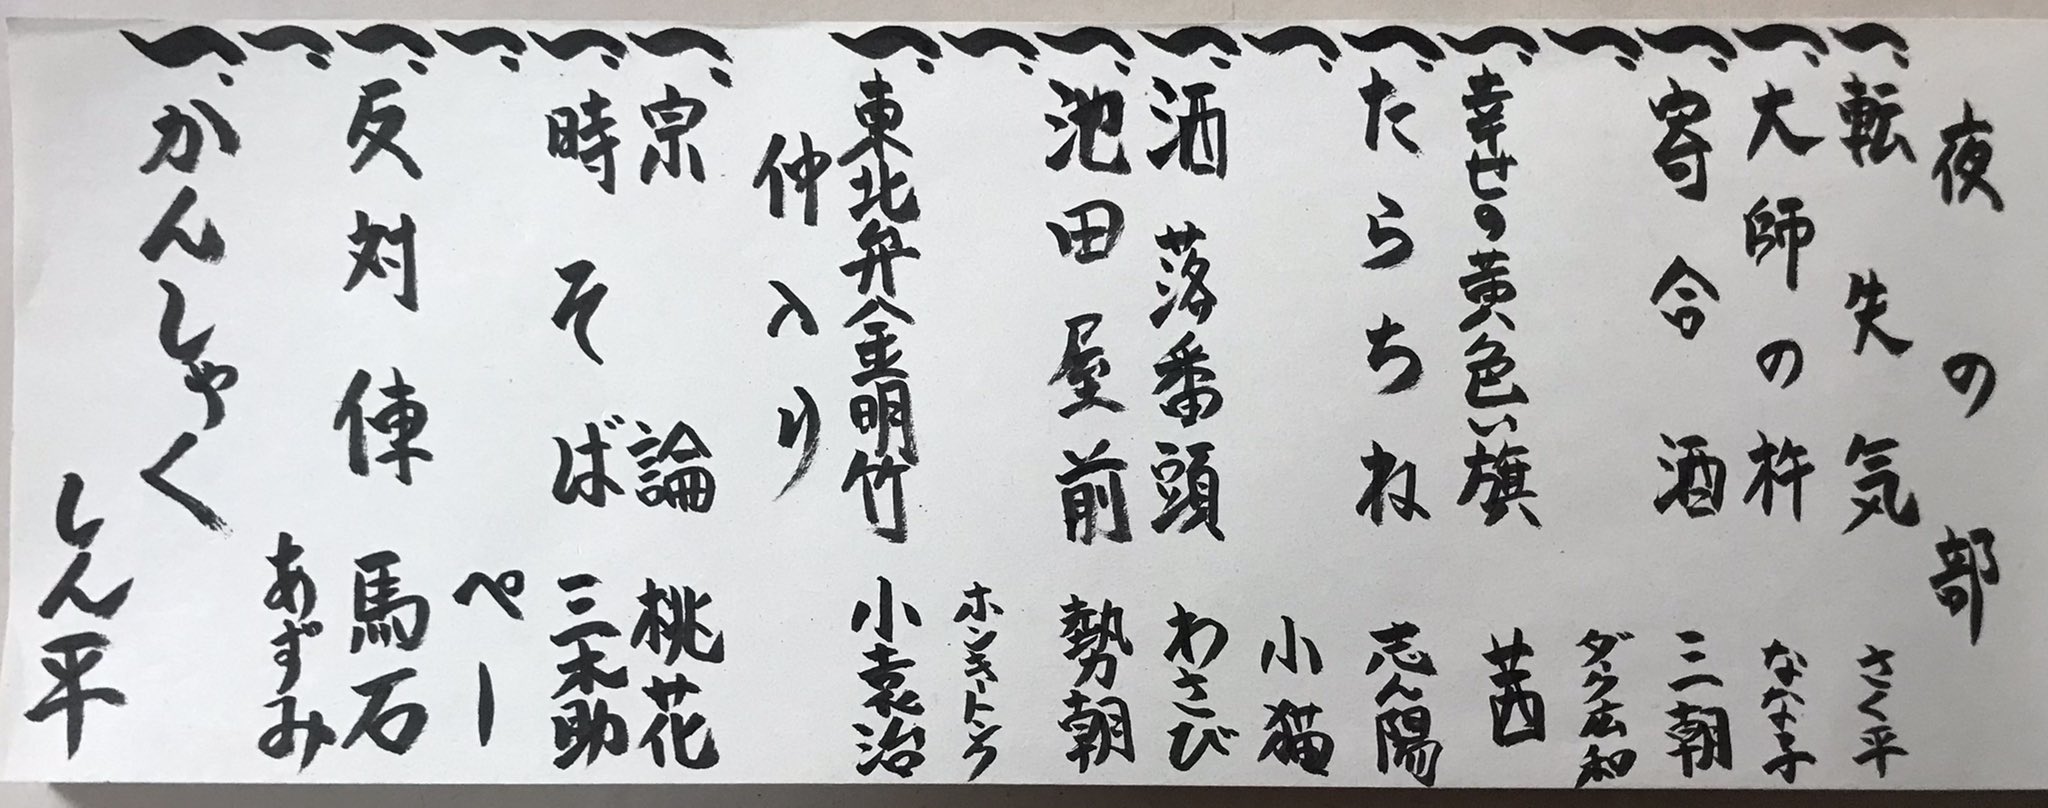 夜の部
一、転失気 さく平
一、大師の杵 なな子
一、寄合酒 三朝
一、 ダーク広和
一、幸せの黄色い旗 茜
一、たらちね 志ん陽
一、 小猫
一、洒落番頭 わさび
一、池田屋前 勢朝
一、 ホンキートンク
一、東北弁金明竹 小袁治
仲入り
一、宗論 桃花
一、時そば 三木助
一、 ぺー
一、反対俥 馬石
一、 あずみ
一、かんしゃく しん平